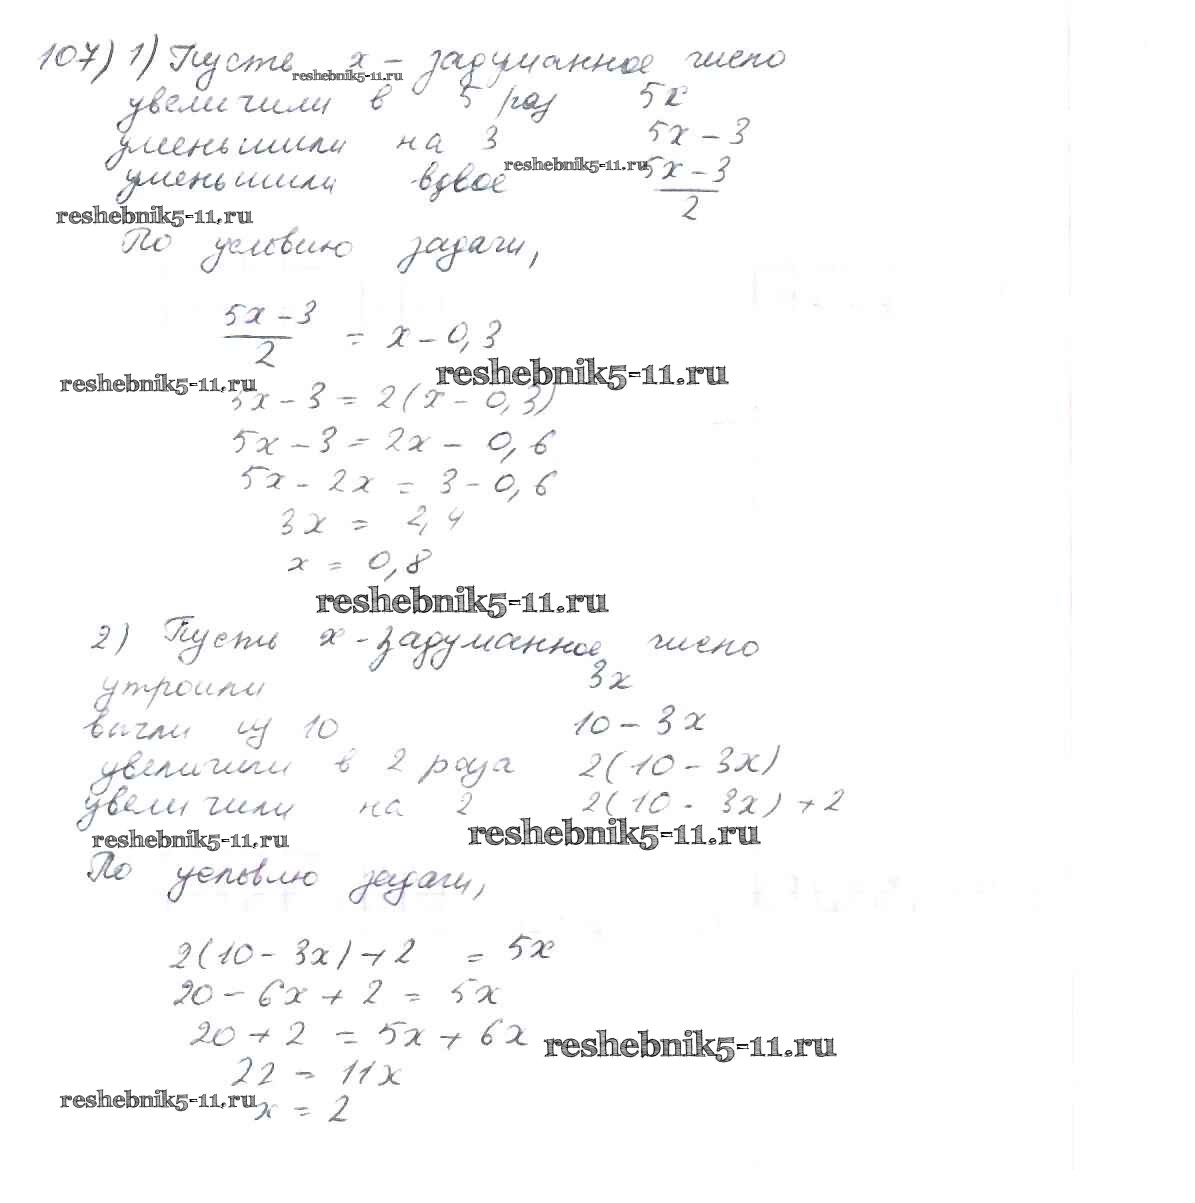 107) 1) Пусть x - задуманное число
reshebnik5-11.ru
увеличили в 5 раз 5x
уменьшили на 3 5x - 3
уменьшили вдвое reshebnik5-11.ru 5x - 3
2
reshebnik5-11.ru
По условию задачи,
5x - 3
2
= x - 0,3
reshebnik5-11.ru reshebnik5-11.ru
5x - 3 = 2(x - 0,3)
5x - 3 = 2x - 0,6
5x - 2x = 3 - 0,6
3x = 2,4
x = 0,8
reshebnik5-11.ru
2) Пусть x - задуманное число
утроили 3x
вычли из 10 10 - 3x
увеличили в 2 раза 2(10 - 3x)
увеличили на 2 2(10 - 3x) + 2
reshebnik5-11.ru reshebnik5-11.ru
По условию задачи,
2(10 - 3x) + 2 = 5x
20 - 6x + 2 = 5x
20 + 2 = 5x + 6x reshebnik5-11.ru
22 = 11x
reshebnik5-11.ru
x = 2